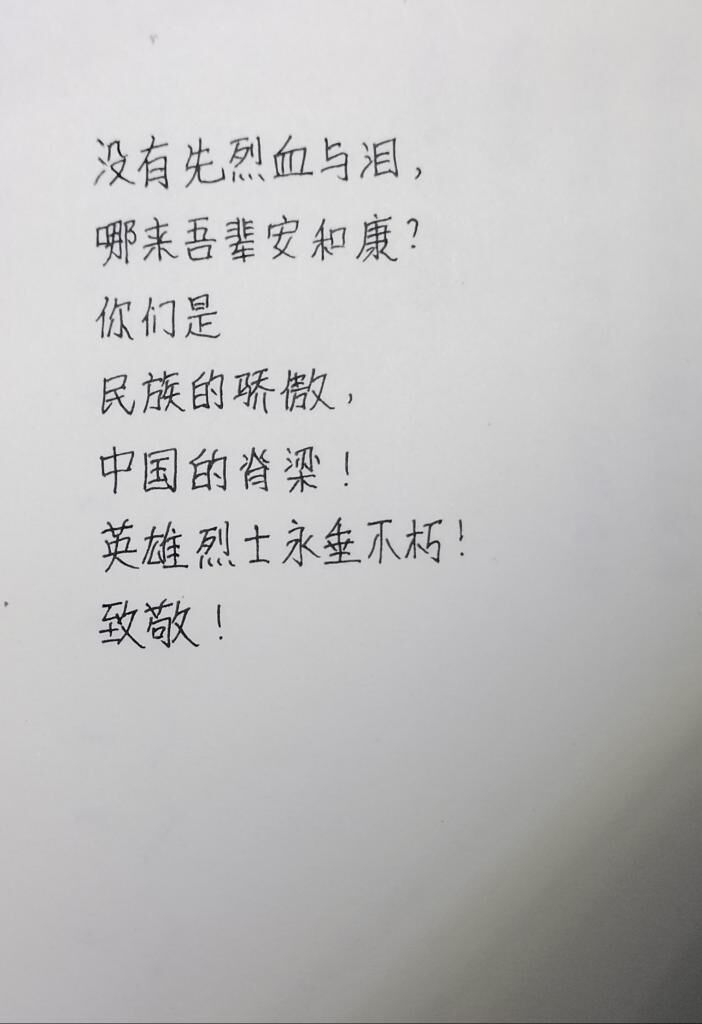 没有先烈血与泪，
哪来吾辈安和康？
你们是
民族的骄傲，
中国的脊梁！
英雄烈士永垂不朽！
致敬！